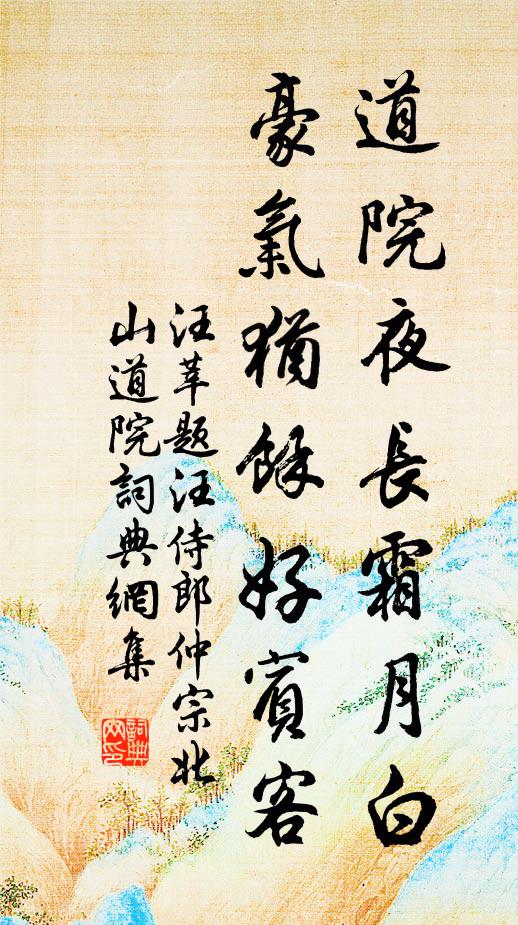 道院夜長霜月白
豪氣猶餘好賓客
汪莘题汪侍郎仲宗北
山道院詞典網集
詞典
网印